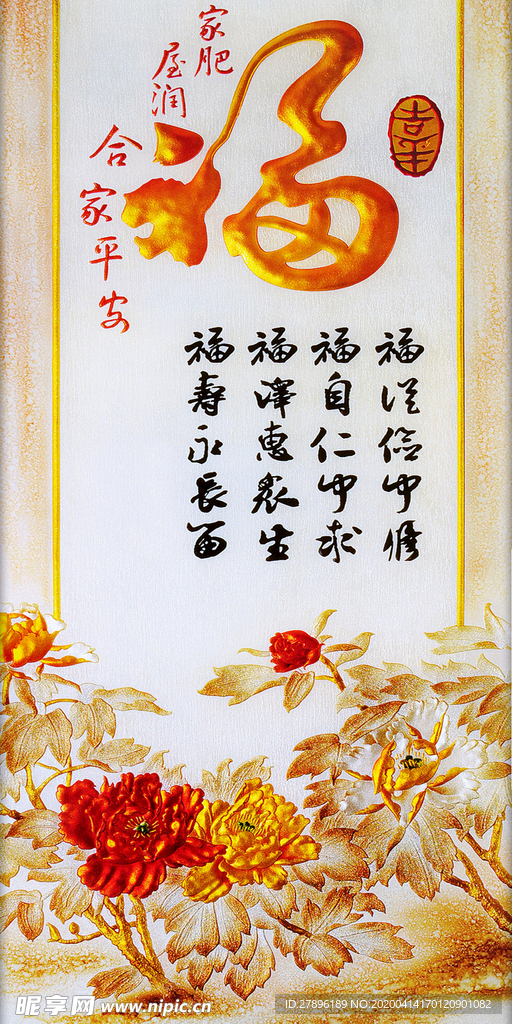 福
家肥
屋润
合家平安
福從儉中修
福自仁中求
福澤惠衆生
福壽永長留
昵享网 www.nipic.cn
ID:27896189 NO:20200414170120901082